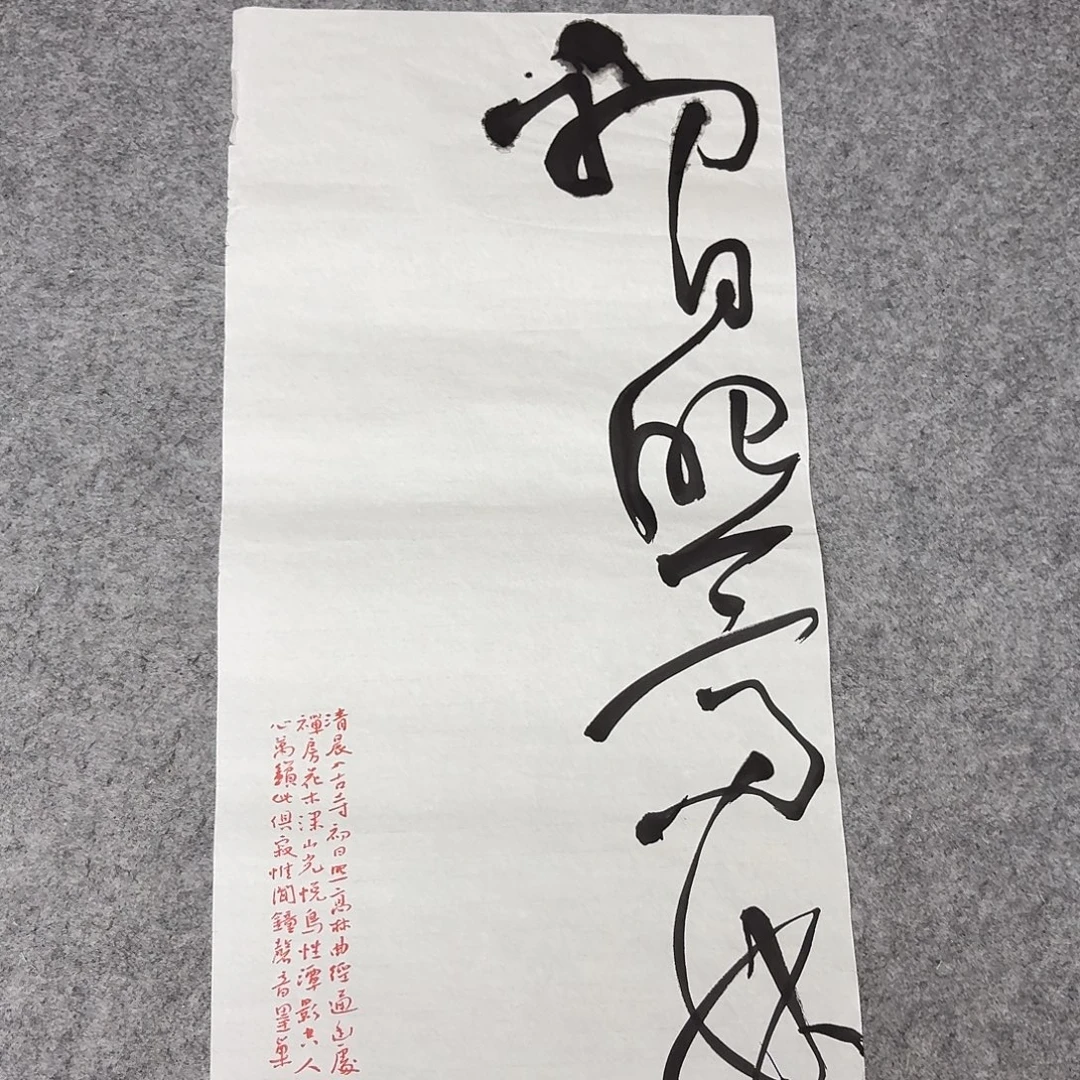 初日照高林
清晨入古寺初日照高林曲徑通幽處
禪房花木深山光悅鳥性潭影空人
心萬籟此俱寂惟聞鐘磬音墨巢